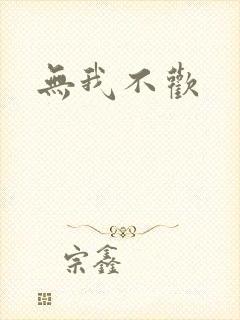 無我不歡
宗鑫